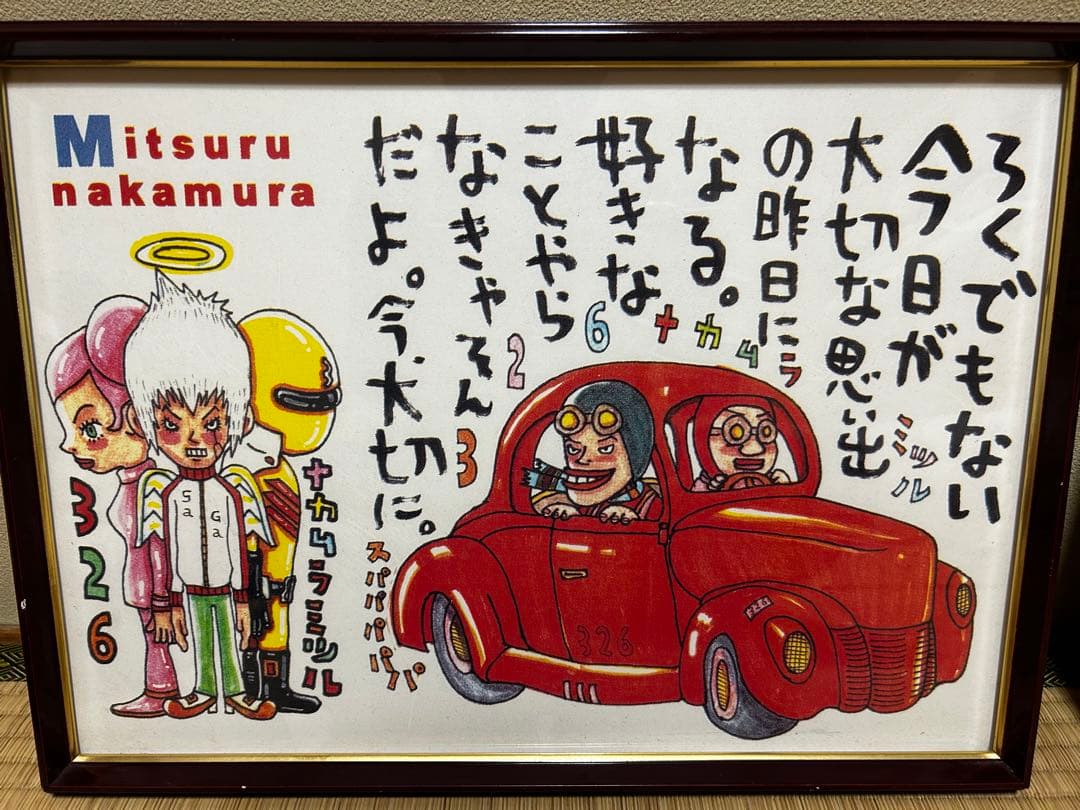 Mitsuru
nakamura
ろくでもない
今日が
大切な思い出
の昨日に
なる。
好きな
ことやら
なきゃそん
だよ。今、大切に。
326
ナカムラ
ミツル
326
ナカムラミツル
Sa
Ga
3
326
スパパパパパ